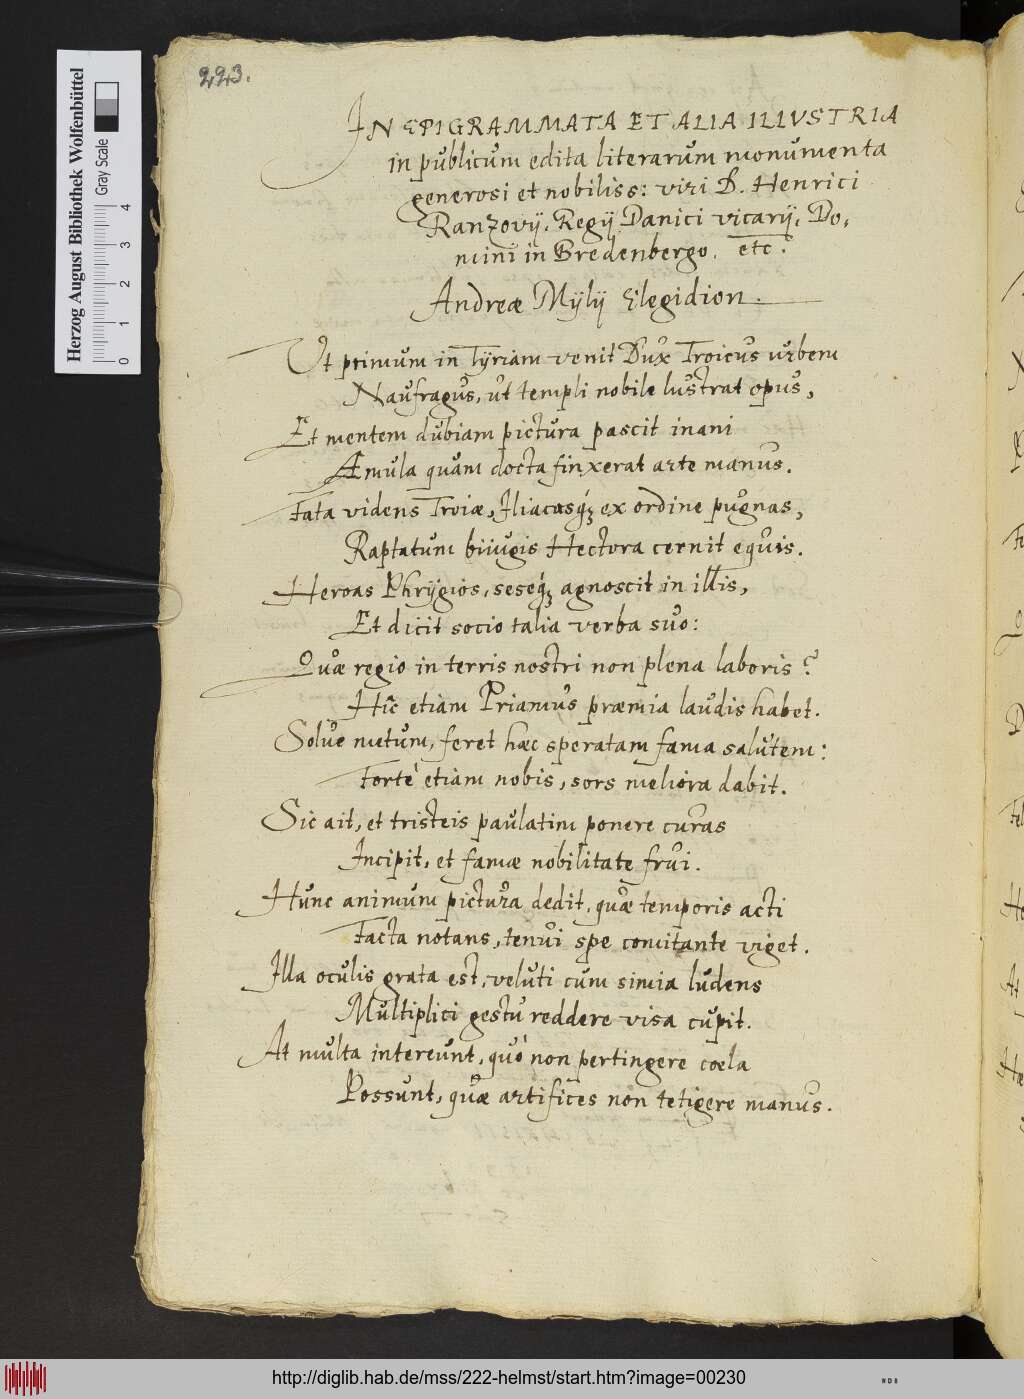 223.
IN EPIGRAMMATA ET ALIA ILLVSTRIA
in publicum edita literarum monumenta
generosi et nobiliss: viri D. Henrici
Ranzovij, Regij Danici vicarij, Do,
mini in Bredenbergo. etc.
Andreæ Mylij Elegidion.
Ut primum in Tyriam venit Dux Troicus urbem
Naufragus, ut templi nobile lustrat opus,
Et mentem dubiam pictura pascit inani
Æmula quàm docta finxerat arte manus.
Fata videns Troiæ, Iliacasq́ꝫ ex ordine pugnas,
Raptatum biiugis Hectora cernit equis.
Heroas Phrygios, seseq́ꝫ agnoscit in illis,
Et dicit socio talia verba suo:
Quæ regio in terris nostri non plena laboris?
Hîc etiam Priamus præmia laudis habet.
Solve metum, feret hæc speratam fama salutem:
Fortè etiam nobis, sors meliora dabit.
Sic ait, et tristeis paulatim ponere curas
Incipit, et famæ nobilitate frui.
Hunc animum pictura dedit, quæ temporis acti
Facta notans, tenui spe comitante viget.
Illa oculis grata est, veluti cum simia ludens
Multiplici gestu reddere visa cupit.
At multa intereunt, quò non pertingere cœla
Possunt, quæ artifices non tetigere manus.
Herzog August Bibliothek Wolfenbüttel
Gray Scale
0 1 2 3 4
http://diglib.hab.de/mss/222-helmst/start.htm?image=00230